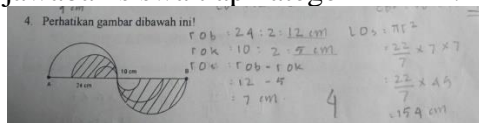 jawaban siswa
4. Perhatikan gambar dibawah ini!
A
24 cm
10 cm
B
r o b : 24 : 2 : 12 cm
r o k : 10 : 2 : 5 cm
r o s : r o b - r o k
: 12 - 5
: 7 cm
4
L O s : πr²
: 22/7 x 7 x 7
: 22/7 x 49
: 154 cm